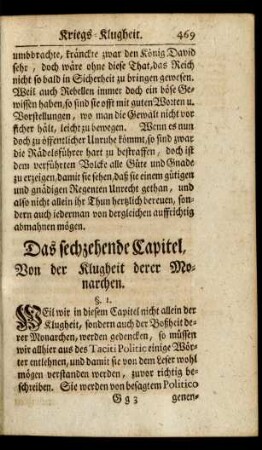 Kriegs-Klugheit. 469
umbbrachte, kränckte zwar den König David
sehr, doch wäre ohne diese That, das Reich
nicht so bald in Sicherheit zu bringen gewesen.
Weil auch Rebellen immer doch ein böse Ge-
wissen haben, so sind sie offt mit guten Worten u.
Vorstellungen, wo man die Gewalt nicht vor
sicher hält, leicht zu bewegen. Wenn es nun
doch zu öffentlicher Unruhe kömmt, so sind zwar
die Rädelsführer hart zu bestraffen, doch ist
dem verführten Volcke alle Güte und Gnade
zu erzeigen, damit sie sehen, daß sie einem gütigen
und gnädigen Regenten Unrecht gethan, und
also nicht allein ihr Thun hertzlich bereuen, son-
dern auch iederman von dergleichen auffrichtig
abmahnen mögen.
Das sechzehende Capitel,
Von der Klugheit derer Mo-
narchen.
§. 1.
WEil wir in diesem Capitel nicht allein der
Klugheit, sondern auch der Boßheit de-
rer Monarchen, werden gedencken, so müssen
wir allhier aus des Taciti Politic einige Wör-
ter entlehnen, und damit sie von dem Leser wohl
mögen verstanden werden, zuvor richtig be-
schreiben. Sie werden von besagtem Politico
G g 3 genen-